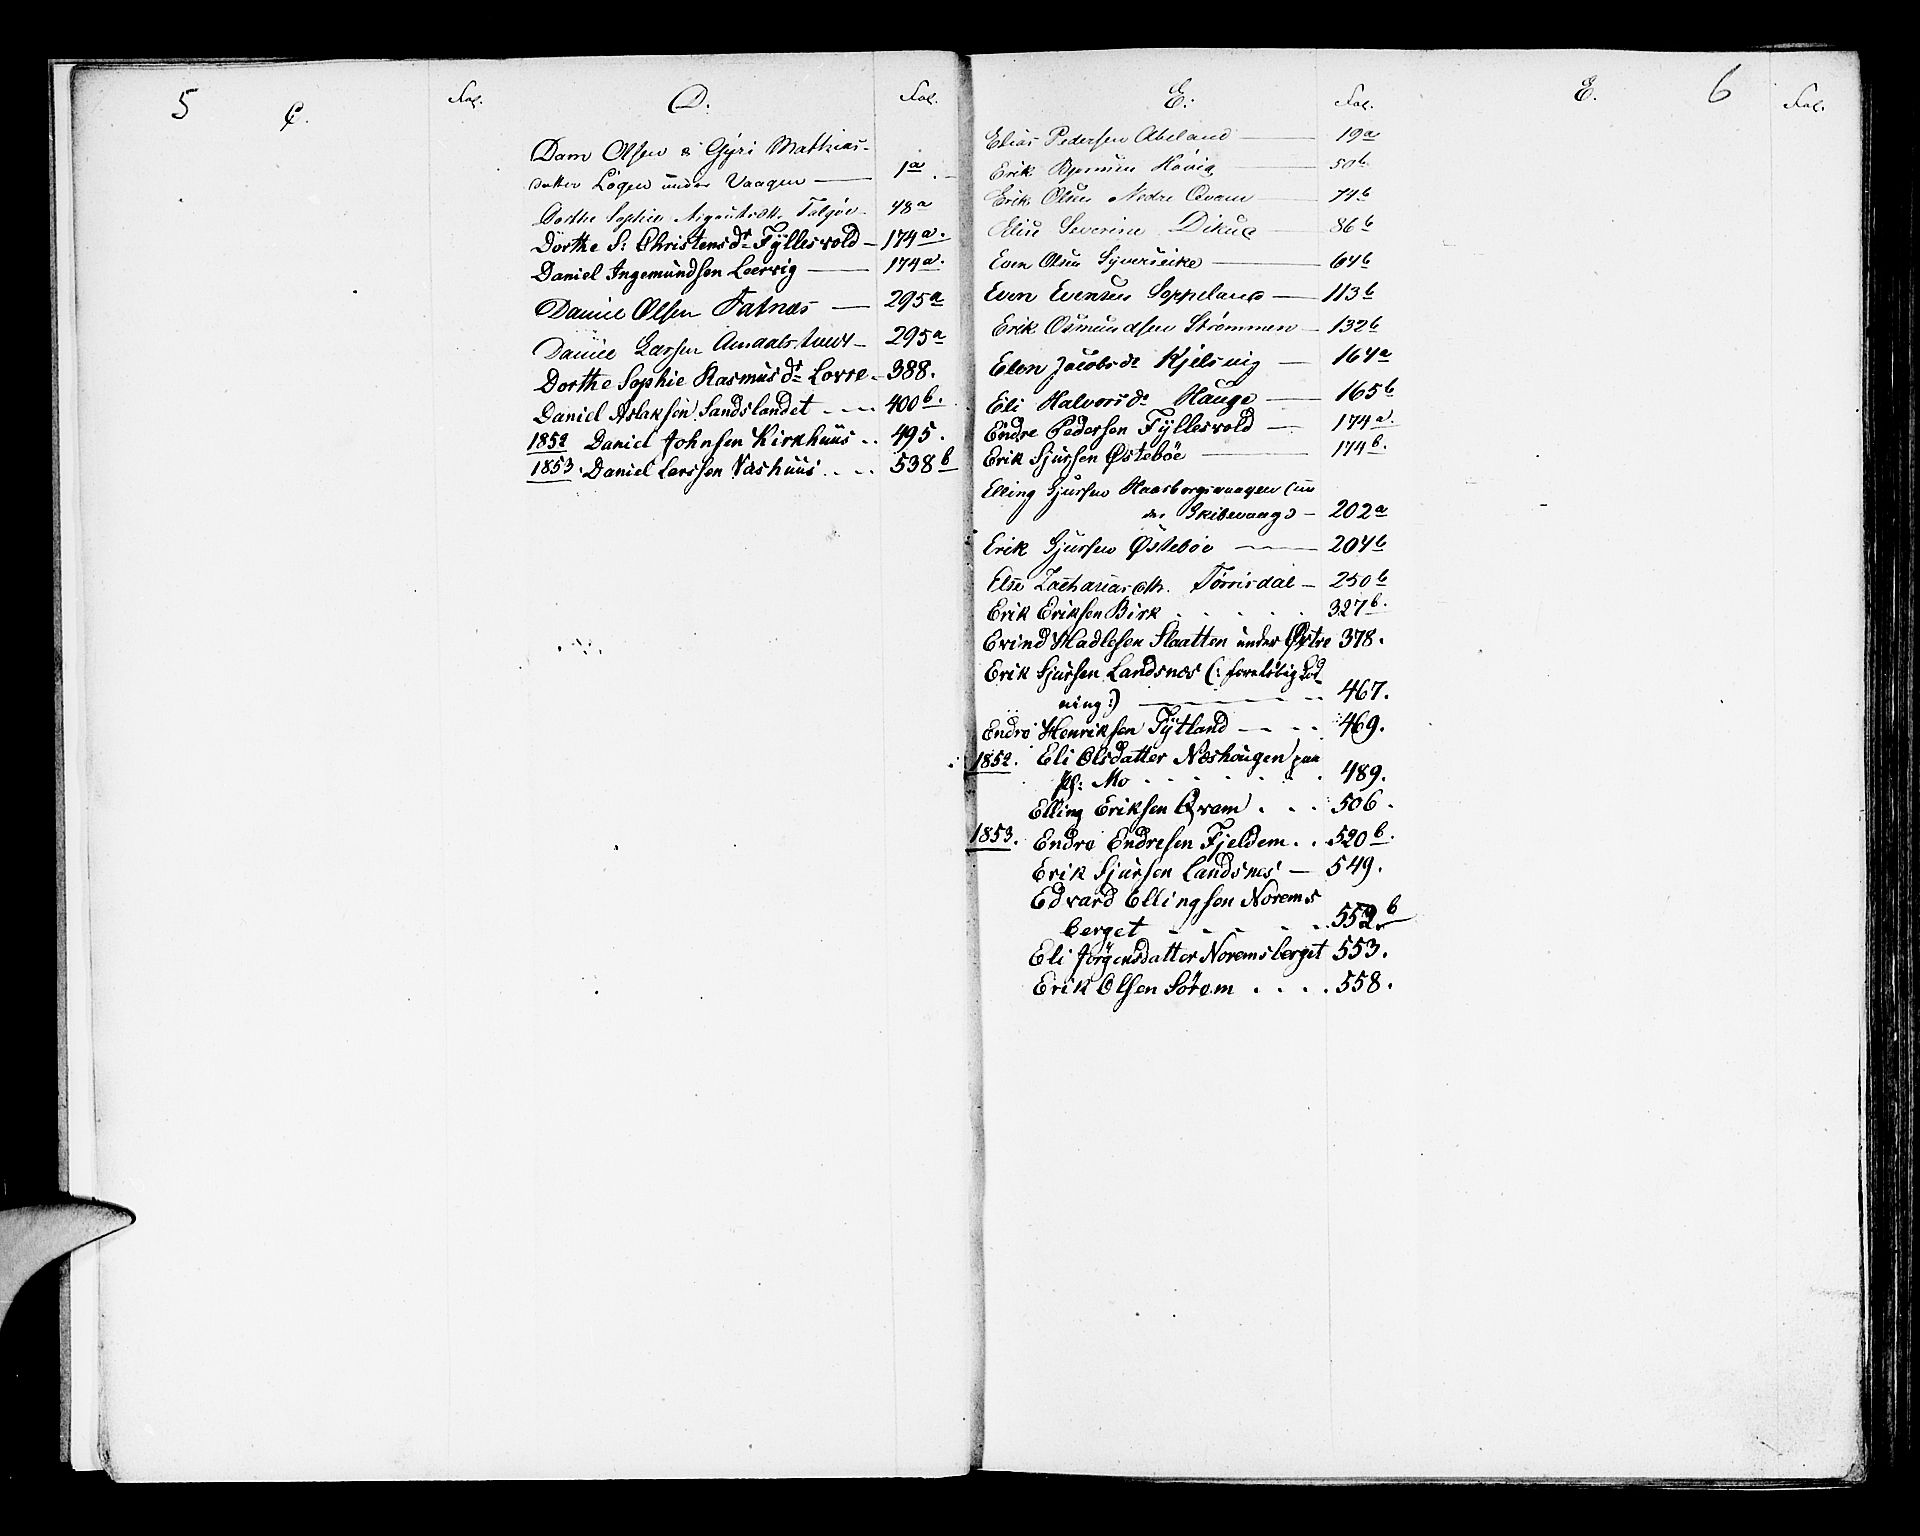 5
C.
Fol.
D.
Fol.
Dam Olsen & Gyri Mathias-
datter Lögen under Vaagen — 1a
Dorthe Sophie Talgøe 48a
Dorthe S: Christensdr Fÿllesvold – 174a.
Daniel Ingemundsen Leervig — 174a.
Daniel Olsen Fatnæs — 295a
Daniel Larsen — 295a
Dorthe Sophie Rasmusdr Lovre – 388.
Daniel Aslaksen Sandslandet - - - 400b.
1852 Daniel Johnsen Kirkhuus . . 495.
1853. Daniel Larssen Næshuus . . . . 538b
E:
Fol.
Elias Pedersen Abeland — 19a
Erik Hövig 50b
Erik Olsen Nedre Qvam — 74b
Elise Severine — 86b
Even Olsen — 64b
Even Evensen Soppeland — 113b
Erik Osmundsen Strømmen – 132b
Elen Jacobsdr Kjelsvig — 164a
Eli Halvorsdr Hauge — 165b
Endre Pedersen Fÿllesvold — 174a.
Erik Sjursen Østebøe — 174b.
Elling Sjursen (un
der – 202a
Erik Sjursen Østebøe — 204b
Else Zachariasdtr. Tørrisdal – 250b
Erik Eriksen Birk . . . . . . 327b.
Evind Madlesen Slaatten under Østre 378.
Erik Sjursen Landsnes (: foreløbig
ning:) — 467.
Endre Henriksen Tÿtland — - - - 469.
1852. Eli Olsdatter Næshougen paa
Pl: Mo . . . . . . . 489.
Elling Eriksen Qvam . . . 506.
1853. Endre Endresen Fjeldem . . 520b.
Erik Sjursen Landsnes — 549.
Edvard Ellingsen Norems
berget - - - - - 552b
Eli Jörgensdatter Noremsberget 553.
Erik Olsen Sörem . . . . 558.
E.
6
Fol.